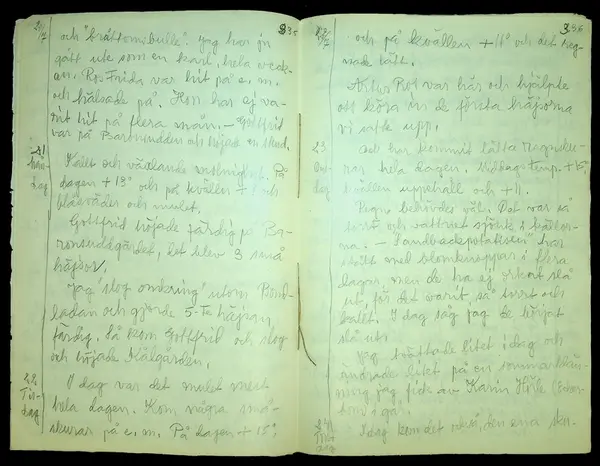 20/7
335
och "bråttombulle". Jag har ju
gått ute som en karl, hela veck-
en. Rg. Frida var hit på e.m.
och hälsade på. Hon har ej va-
rit hit på flera mån. — Gottfrid
var på och höjade en stund.
21
dag
Kallt och växlande molnighet. På
dagen + 13° och på kvällen +
blåväder och mulet.
Gottfrid höjade färdig på
det blev 3 små
häsjor.
Jag slog omkring utom
ladan och gjorde 5-Te hägnan
färdig. Så kom Gottfrid och slog
och höjade Kålgården.
22.
Tis-
dag
I dag var det mulet mest
hela dagen. Kom några små-
skurar på e.m. På dagen + 15°
22/7
336
och på kvällen + 11° och det reg-
nade tätt.
Artur Rot var här och hjälpte
att köra in de första häsjorna
vi satte upp.
23
Ons-
dag
Det har kommit täta regnsku-
rar hela dagen. Middagstemp. + 15°,
kvällen uppehåll och + 11.
Regn behövdes väl. Det var så
torrt och vattnet sjönk i källor-
na. — har
stått med blomknoppar i flera
dagar, men de ha ej orkat slå
ut, för det varit så torrt och
kallt. I dag såg jag de börjat
slå ut.
Jag tvättade litet i dag och
ändrade litet på en sommarklän-
ning jag fick av Karin
i går.
24
dag
I dag kom det också, den ena sku-